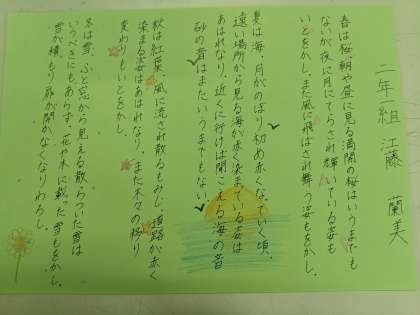 二年一組 江藤 蘭美
春は桜。朝や昼に見る満開の桜はいうまでも
ないが夜に月にてらされ輝いている姿も
いとをかし。また風に飛ばされ舞う姿もをかし。
夏は海。月がのぼり初め赤くなっていく頃、
遠い場所から見る海が赤く染まっている姿は
あはれなり。近くに行けば聞こえる海の音
砂の音はまたいうまでもない。
秋は紅葉。風に流され散るもみじ、道路が赤く
染まる姿はあはれなり。また木々の移り
変わりもいとをかし。
冬は雪。ふと窓から見える散らついた雪は
いうべきにもあらず。花や木に載った雪もをかし。
雪が積もり扉が開かなくなりわろし。